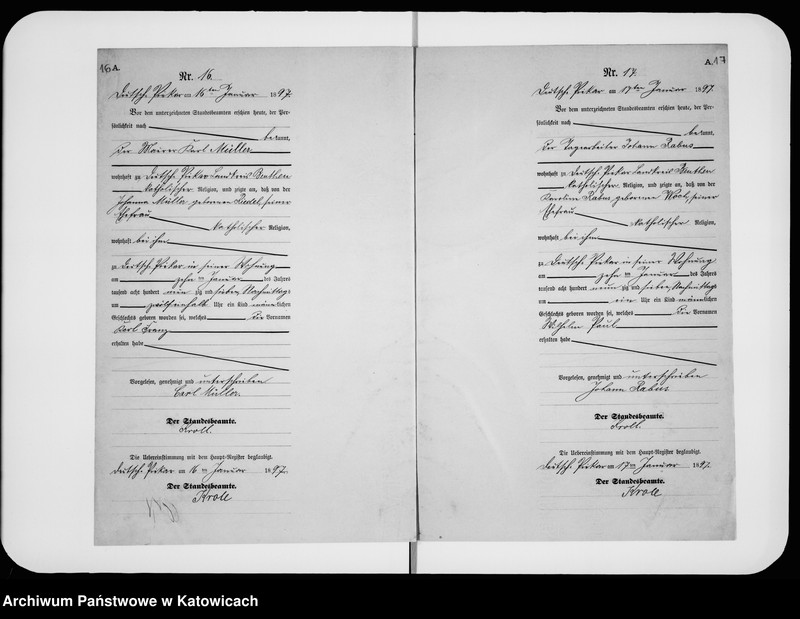 16 A.
Nr. 16.
Deutsch Piekar am 16ten Januar 1897.
Vor dem unterzeichneten Standesbeamten erschien heute, der Per-
sönlichkeit nach
bekannt,
der Maurer Karl Müller
wohnhaft zu Deutsch Piekar Landkreis Beuthen
katholischer Religion, und zeigte an, daß von der
Johanna Müller geborenen seiner
Ehefrau
katholischer Religion,
wohnhaft bei ihm
zu Deutsch Piekar in seiner Wohnung
am zehn ten Januar des Jahres
tausend acht hundert neunzig und sieben Nachmittags
um Uhr ein Kind männlichen
Geschlechts geboren worden sei, welches die Vornamen
Karl Franz
erhalten habe
Vorgelesen, genehmigt und unterschrieben
Carl Müller.
Der Standesbeamte.
Kroll.
Die Uebereinstimmung mit dem Haupt-Register beglaubigt.
Deutsch Piekar am 16ten Januar 1897.
Der Standesbeamte.
Krole
A. 17
Nr. 17.
Deutsch Piekar am 17ten Januar 1897
Vor dem unterzeichneten Standesbeamten erschien heute, der Per-
sönlichkeit nach
bekannt,
der Tagearbeiter Johann Rabus
wohnhaft zu Deutsch Piekar Landkreis Beuthen
katholischer Religion, und zeigte an, daß von der
Karoline Rabus geborenen seiner
Ehefrau
katholischer Religion,
wohnhaft bei ihm
zu Deutsch Piekar in seiner Wohnung
am zehn ten Januar des Jahres
tausend acht hundert neunzig und sieben Nachmittags
um ein Uhr ein Kind männlichen
Geschlechts geboren worden sei, welches die Vornamen
Wilhelm Paul
erhalten habe
Vorgelesen, genehmigt und unterschrieben
Johann Rabus
Der Standesbeamte.
Kroll.
Die Uebereinstimmung mit dem Haupt-Register beglaubigt.
Deutsch Piekar am 17ten Januar 1897.
Der Standesbeamte.
Krole
Archiwum Państwowe w Katowicach